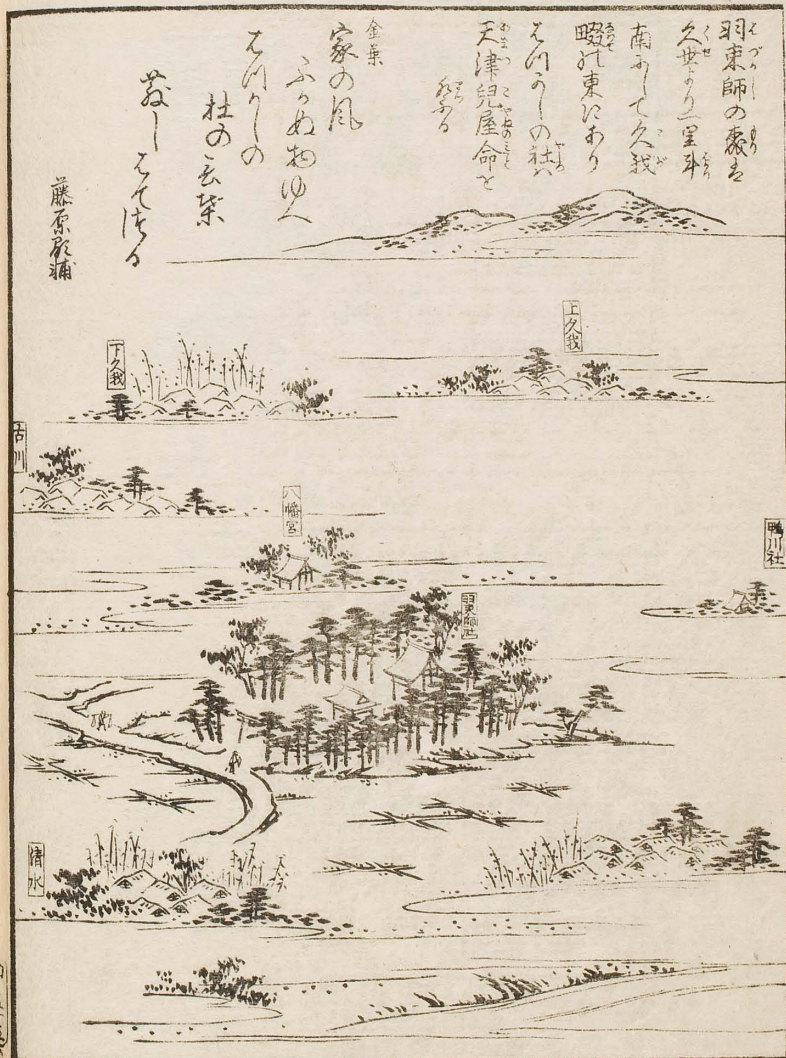 羽束師の森は
久世より一里斗
南にして久我
畷の東にあり
はつかしの社ハ
天津兒屋命を
祭る
金葉
家の風
ふかぬ物ゆへ
はつかしの
杜の言葉
散しはてつる
藤原顕輔
上久我
下久我
古川
八幡宮
鴨川社
羽束師社
清水